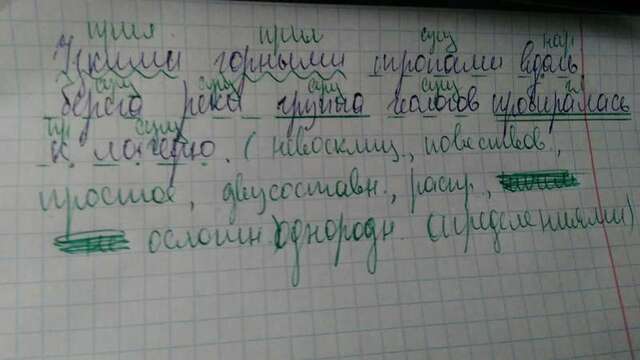 прил. прил сущ нар.
Узкими горными тропами вдоль
сущ сущ сущ сущ гл
берега реки группа геологов пробиралась
пр сущ
к лагерю. (невосклиц., повествов.,
простое, двусоставн., распр.,
ослажн. однородн. определениями)